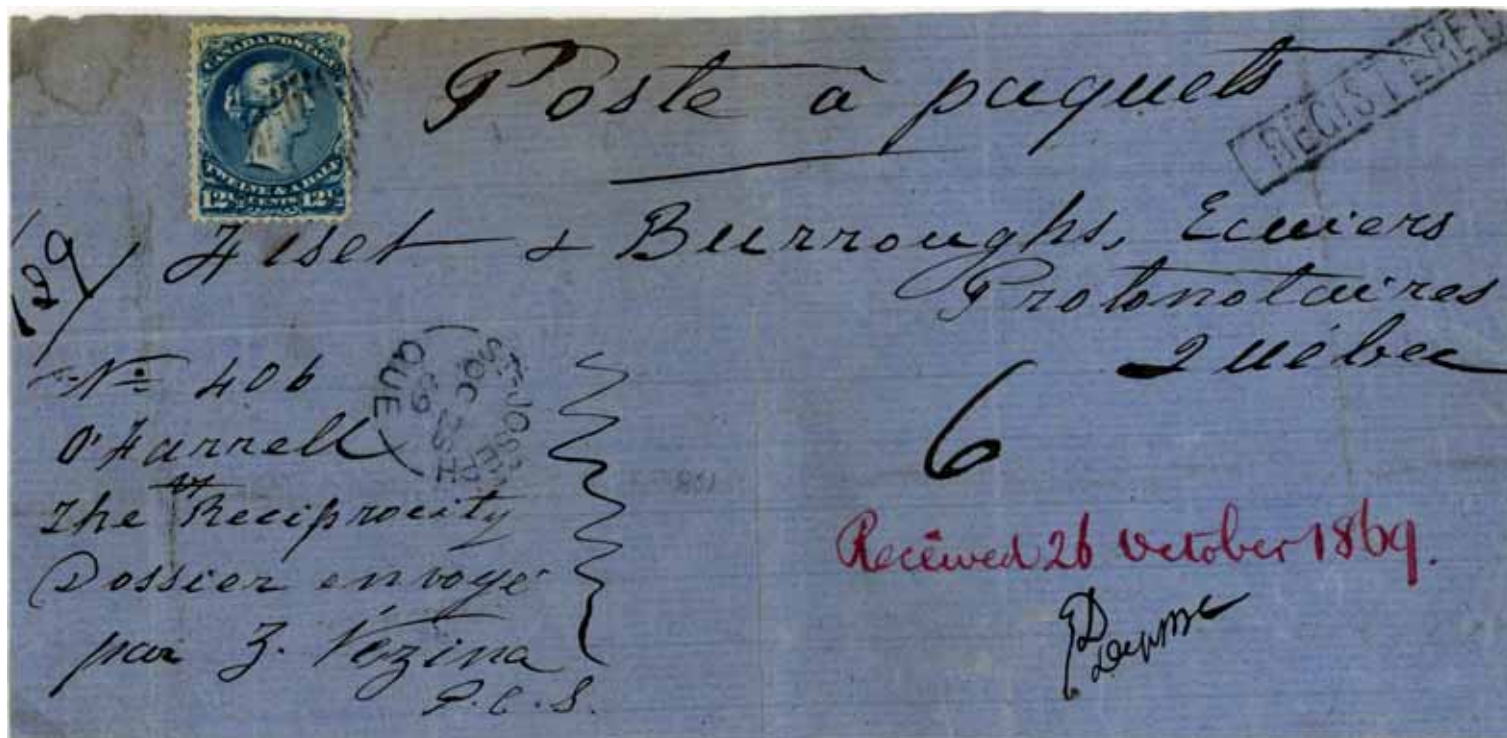 CANADA POSTAGE
TWELVE & A HALF
12½ CENTS 12½
Poste à paquets
REGISTERED
129/
Fiset & Burroughs, Ecuiers
Protonotaires
Québec
6
No 406
O'Farrell
vs
The Reciprocity
Dossier envoyé
par Z. Vézina
P.C.S.
ST-JOSEPH
OC
69
QUE
Received 26 October 1869.